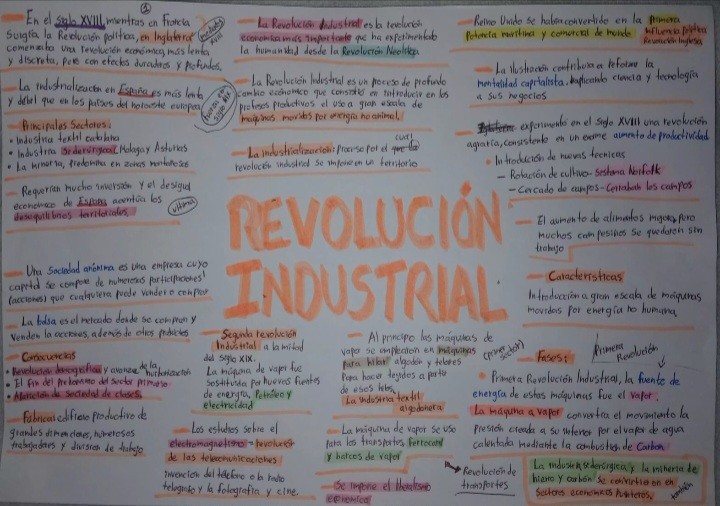 En el siglo XVIII mientras en Francia
surgía la Revolución política, en Inglaterra
comenzaba una revolución económica, más lenta
y discreta, pero con efectos duraderos y profundos.
La industrialización en España es más lenta
y débil que en los países del noroeste europeo
Principales Sectores:
• Industria textil catalana
• Industria Siderúrgica, Malaga y Asturias
• La minería, predomina en zonas montañosas
Requerían mucha inversión y el desigual
económico de España acentúa los
desequilibrios territoriales.
última
Una Sociedad anónima es una empresa cuyo
capital se compone de numerosas participaciones
(acciones) que cualquiera puede vender o comprar
La bolsa es el mercado donde se compran y
venden la acciones, además de otros productos
Consecuencias
• Revolución demográfica y avance de la
• El fin del predominio del sector primario
• Aparición de Sociedad de clases.
Fábricas: edificios productivo de
grandes dimensiones, numerosos
trabajadores y division de trabajo
La Revolución Industrial es la revolución
económica más importante que ha experimentado
la humanidad desde la Revolución Neolítica
La Revolución Industrial es un proceso de profundo
cambio económico que consistió en introducir en los
procesos productivos el uso a gran escala de
máquinas movidas por energía no animal.
La industrialización: proceso por el cual la
revolución industrial se impone en un territorio
REVOLUCIÓN
INDUSTRIAL
Segunda revolución
Industrial a la mitad
del siglo XIX.
La máquina de vapor fue
sustituida por nuevas fuentes
de energía, Petróleo y
electricidad
Los estudios sobre el
electromagnetismo = revolución
de las telecomunicaciones
invención del teléfono o la radio
telegrafo y la fotografía y cine.
Al principio las máquinas de
vapor se emplearon en máquinas
para hilar algodón y telares
Para hacer tejidos a partir
de esos telas.
La industria textil
algodonera
(primer
sector)
La máquina de vapor se uso
para los transportes, ferrocarril
y barcos de vapor
Se impone el liberalismo
económico
Revolución de
transportes
Reino Unido se habia convertido en la primera
Potencia marítima y comercial de mundo.
Influencia política
Revolución Inglesa
La ilustración contribuía a reforzar la
mentalidad capitalista. Aplicando ciencia y tecnología
a sus negocios
Inglaterra experimentó en el Siglo XVIII una revolución
agraria, consistente en un enorme aumento de productividad
• Introducción de nuevas técnicas
– Rotación de cultivo – Sistema Norfolk
– Cercado de campos – Cerraban los campos
El aumento de alimentos mejoró, pero
muchos campesinos se quedaron sin
trabajo
Características
Introducción a gran escala de máquinas
movidas por energía no humana,
Fases:
Primera
Revolución
• Primera Revolución Industrial, la fuente de
energía de estas máquinas fue el vapor.
La máquina a vapor convertía el movimiento la
presión creada a su interior por el vapor de agua
calentada mediante la combustión de Carbón
La industria siderúrgica, y la minería de
hierro y carbón se convirtieron en
Sectores económicos punteros.
también